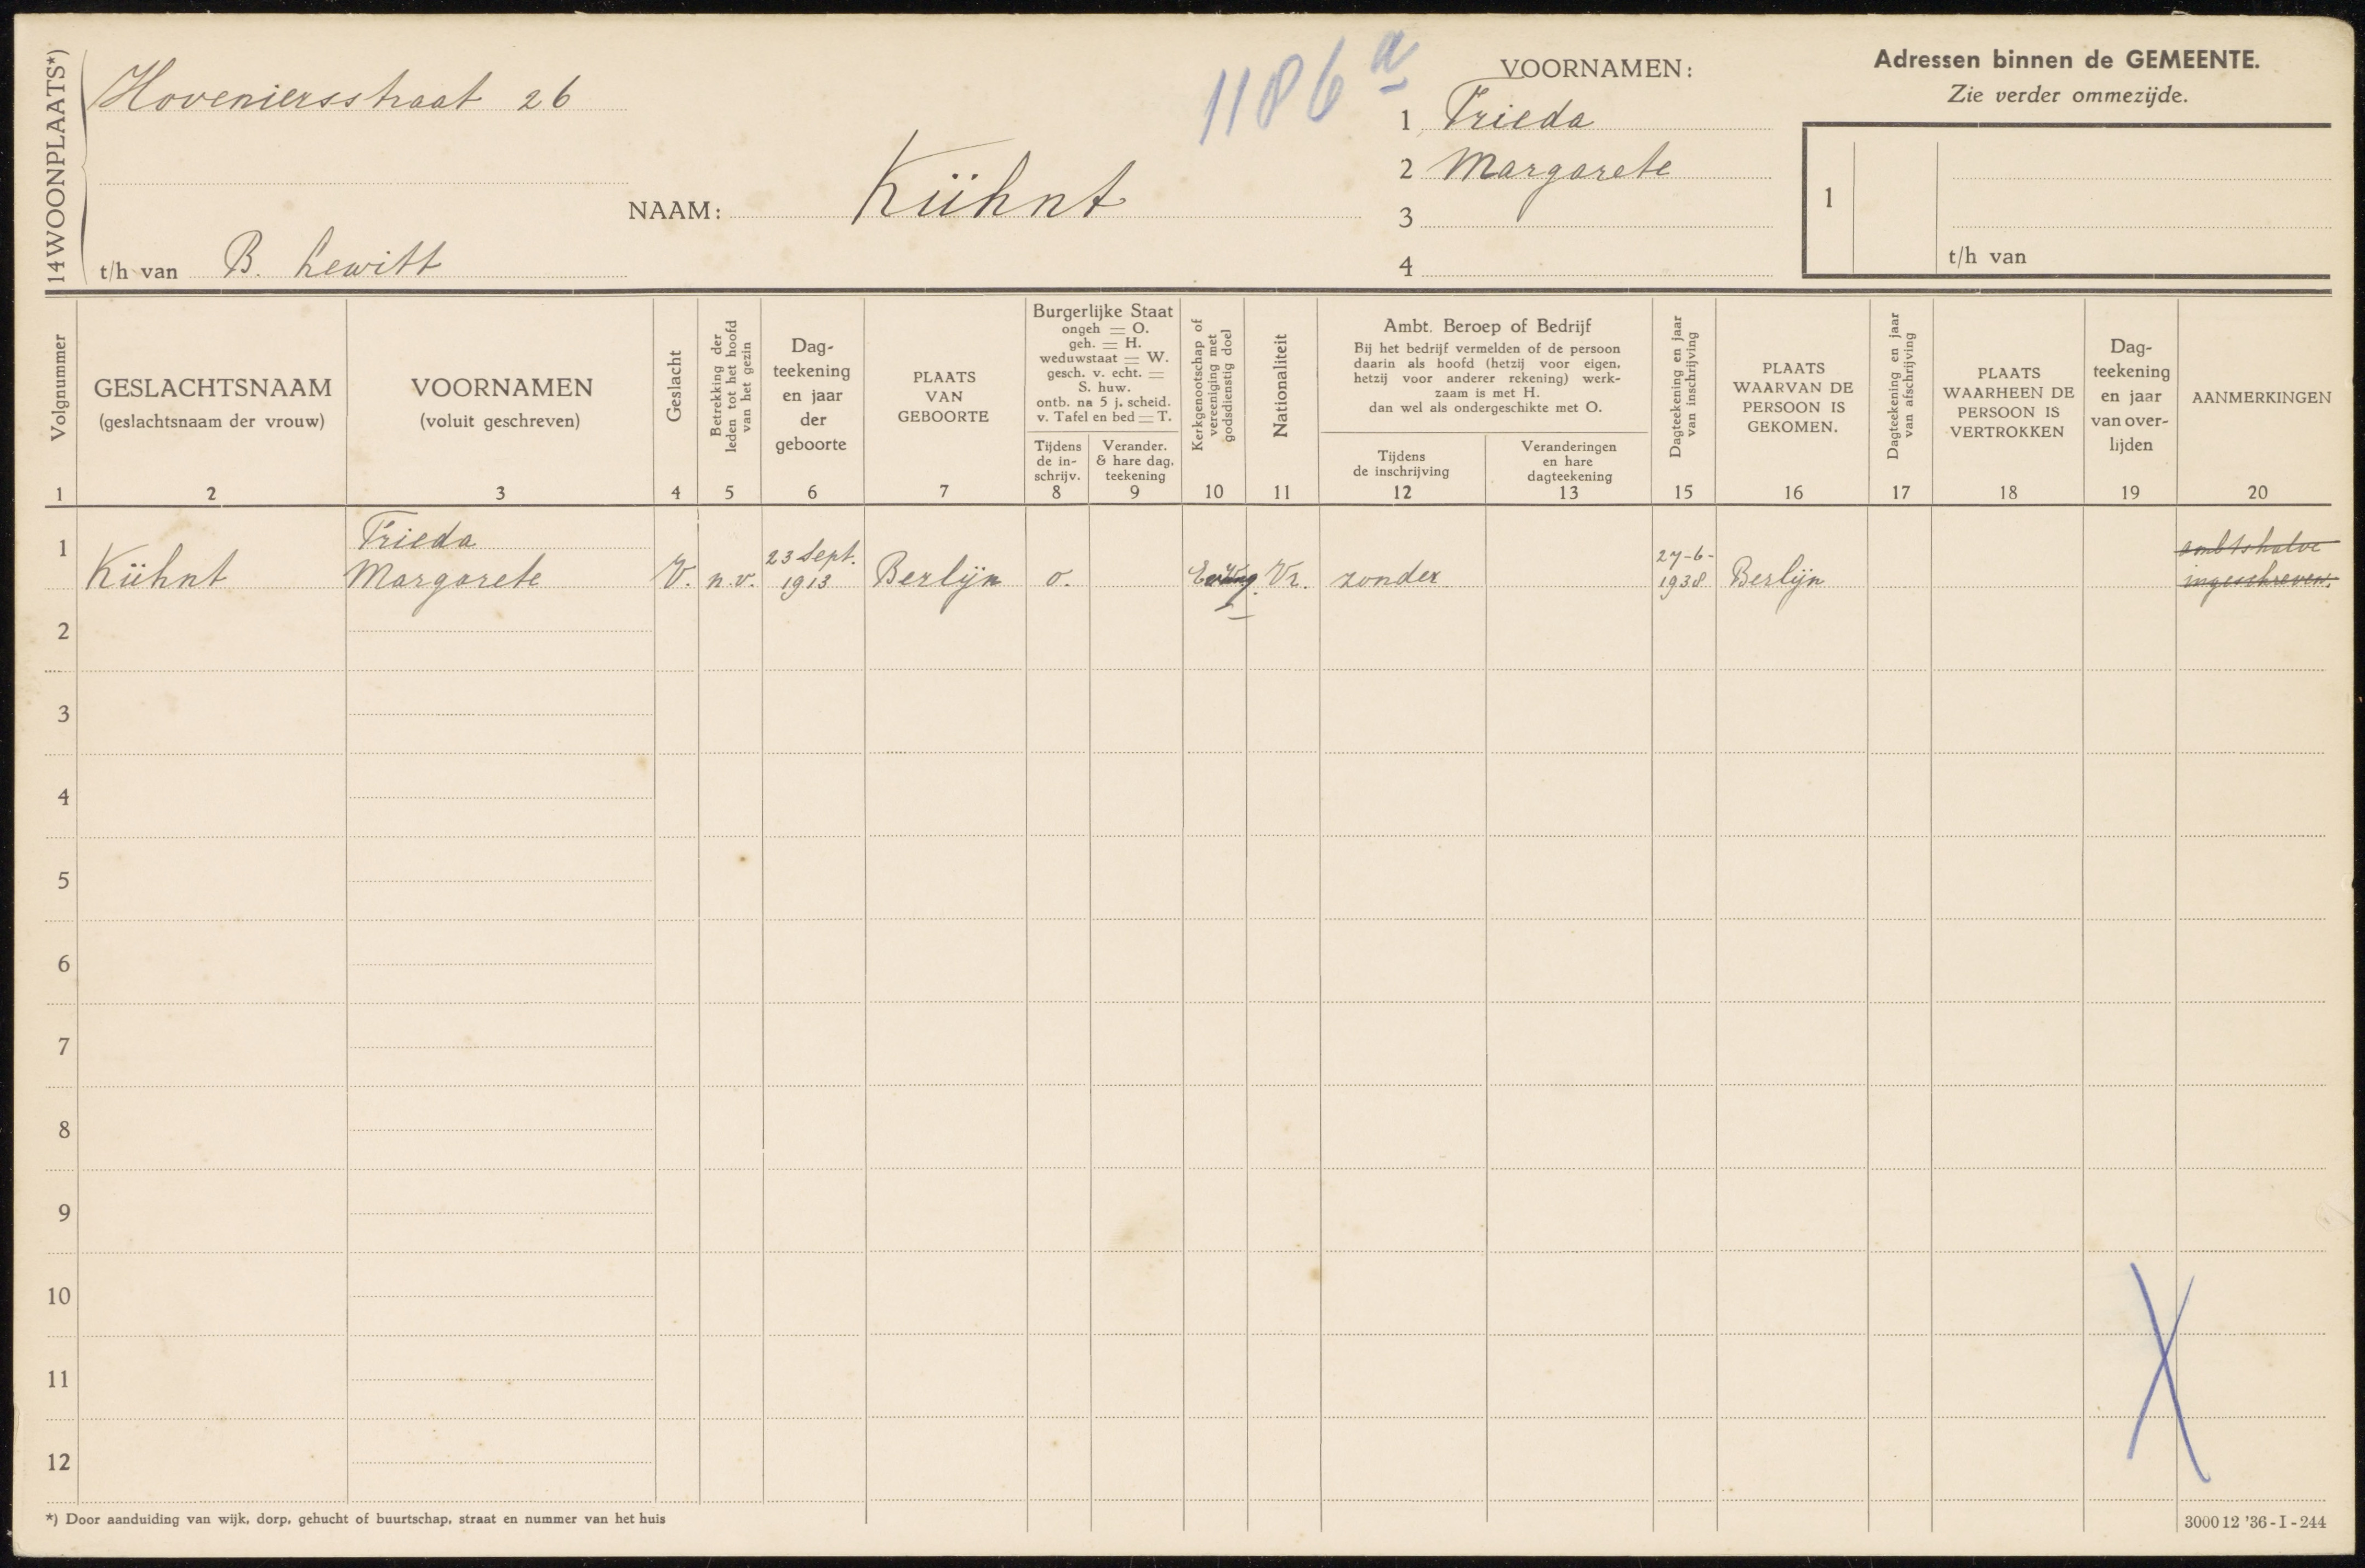 14 WOONPLAATS*)
Hoveniersstraat 26
t/h van B. Lewitt
NAAM: Kühnt
1186 a
VOORNAMEN:
1 Frieda
2 Margarete
3
4
Adressen binnen de GEMEENTE.
Zie verder ommezijde.
1
t/h van
Volgnummer
1
GESLACHTSNAAM
(geslachtsnaam der vrouw)
2
VOORNAMEN
(voluit geschreven)
3
Geslacht
4
Betrekking der
leden tot het hoofd
van het gezin
5
Dag-
teekening
en jaar
der
geboorte
6
PLAATS
VAN
GEBOORTE
7
Burgerlijke Staat
ongeh = O.
geh. = H.
weduwstaat = W.
gesch. v. echt. =
S. huw.
ontb. na 5 j. scheid.
v. Tafel en bed = T.
Tijdens
de in-
schrijv.
8
Verander.
& hare dag.
teekening
9
Kerkgenootschap of
vereeniging met
godsdienstig doel
10
Nationaliteit
11
Ambt. Beroep of Bedrijf
Bij het bedrijf vermelden of de persoon
daarin als hoofd (hetzij voor eigen,
hetzij voor anderer rekening) werk-
zaam is met H.
dan wel als ondergeschikte met O.
Tijdens
de inschrijving
12
Veranderingen
en hare
dagteekening
13
Dagteekening en jaar
van inschrijving
15
PLAATS
WAARVAN DE
PERSOON IS
GEKOMEN.
16
Dagteekening en jaar
van afschrijving
17
PLAATS
WAARHEEN DE
PERSOON IS
VERTROKKEN
18
Dag-
teekening
en jaar
van over-
lijden
19
AANMERKINGEN
20
1
Kühnt
Frieda
Margarete
V.
n.v.
23 Sept.
1913
Berlijn
o.
Vr.
zonder
27-6-
1938
Berlijn
ambtshalve
ingeschreven.
2
3
4
5
6
7
8
9
10
11
12
*) Door aanduiding van wijk, dorp, gehucht of buurtschap, straat en nummer van het huis
3000 12 '36 - I - 244